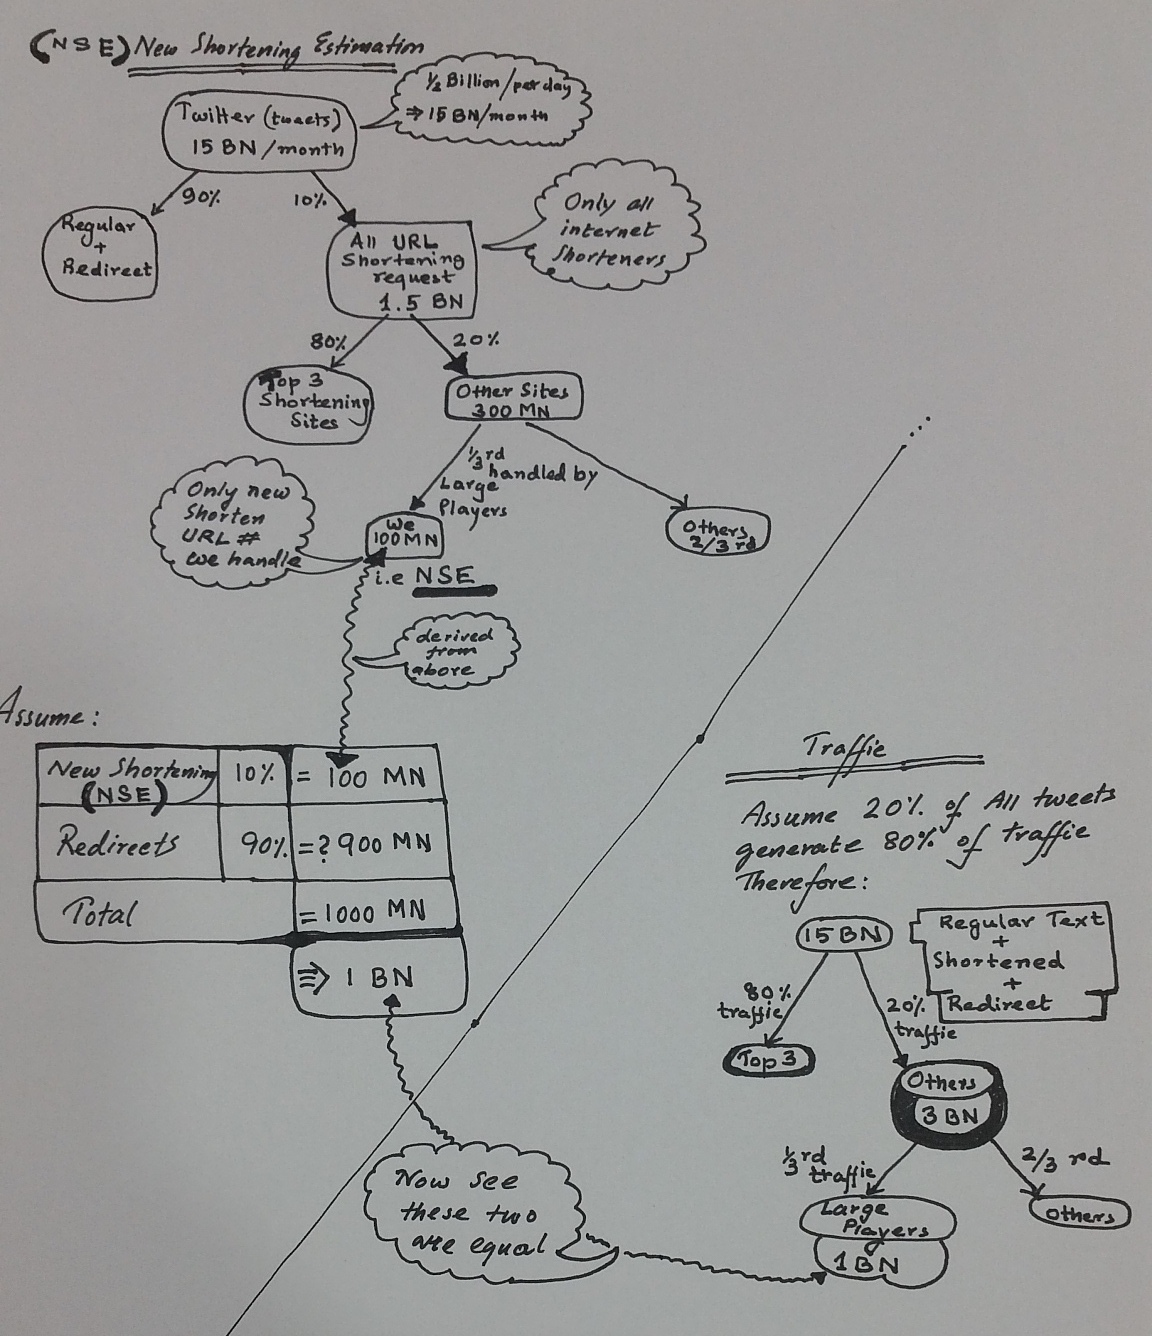 (NSE) New Shortening Estimation
½ Billion/per day
⇒ 15 BN/month
Twitter (tweets)
15 BN/month
90%
10%
Regular
+
Redirect
All URL
Shortening
request
1.5 BN
Only all
internet
Shorteners
80%
20%
Top 3
Shortening
Sites
Other Sites
300 MN
⅓rd
handled by
Large
Players
Only new
Shorten
URL #
we handle
We
100 MN
Others
2/3 rd
i.e NSE
derived
from
above
Assume:
New Shortening
(NSE)
10%
= 100 MN
Redirects
90%
=? 900 MN
Total
= 1000 MN
⇒ 1 BN
Now see
these two
are equal
Traffic
Assume 20% of All tweets
generate 80% of traffic
Therefore:
15 BN
Regular Text
+
Shortened
+
Redirect
80%
traffic
20%
traffic
Top 3
Others
3 BN
⅓rd
traffic
2/3 rd
Large
Players
1 BN
Others